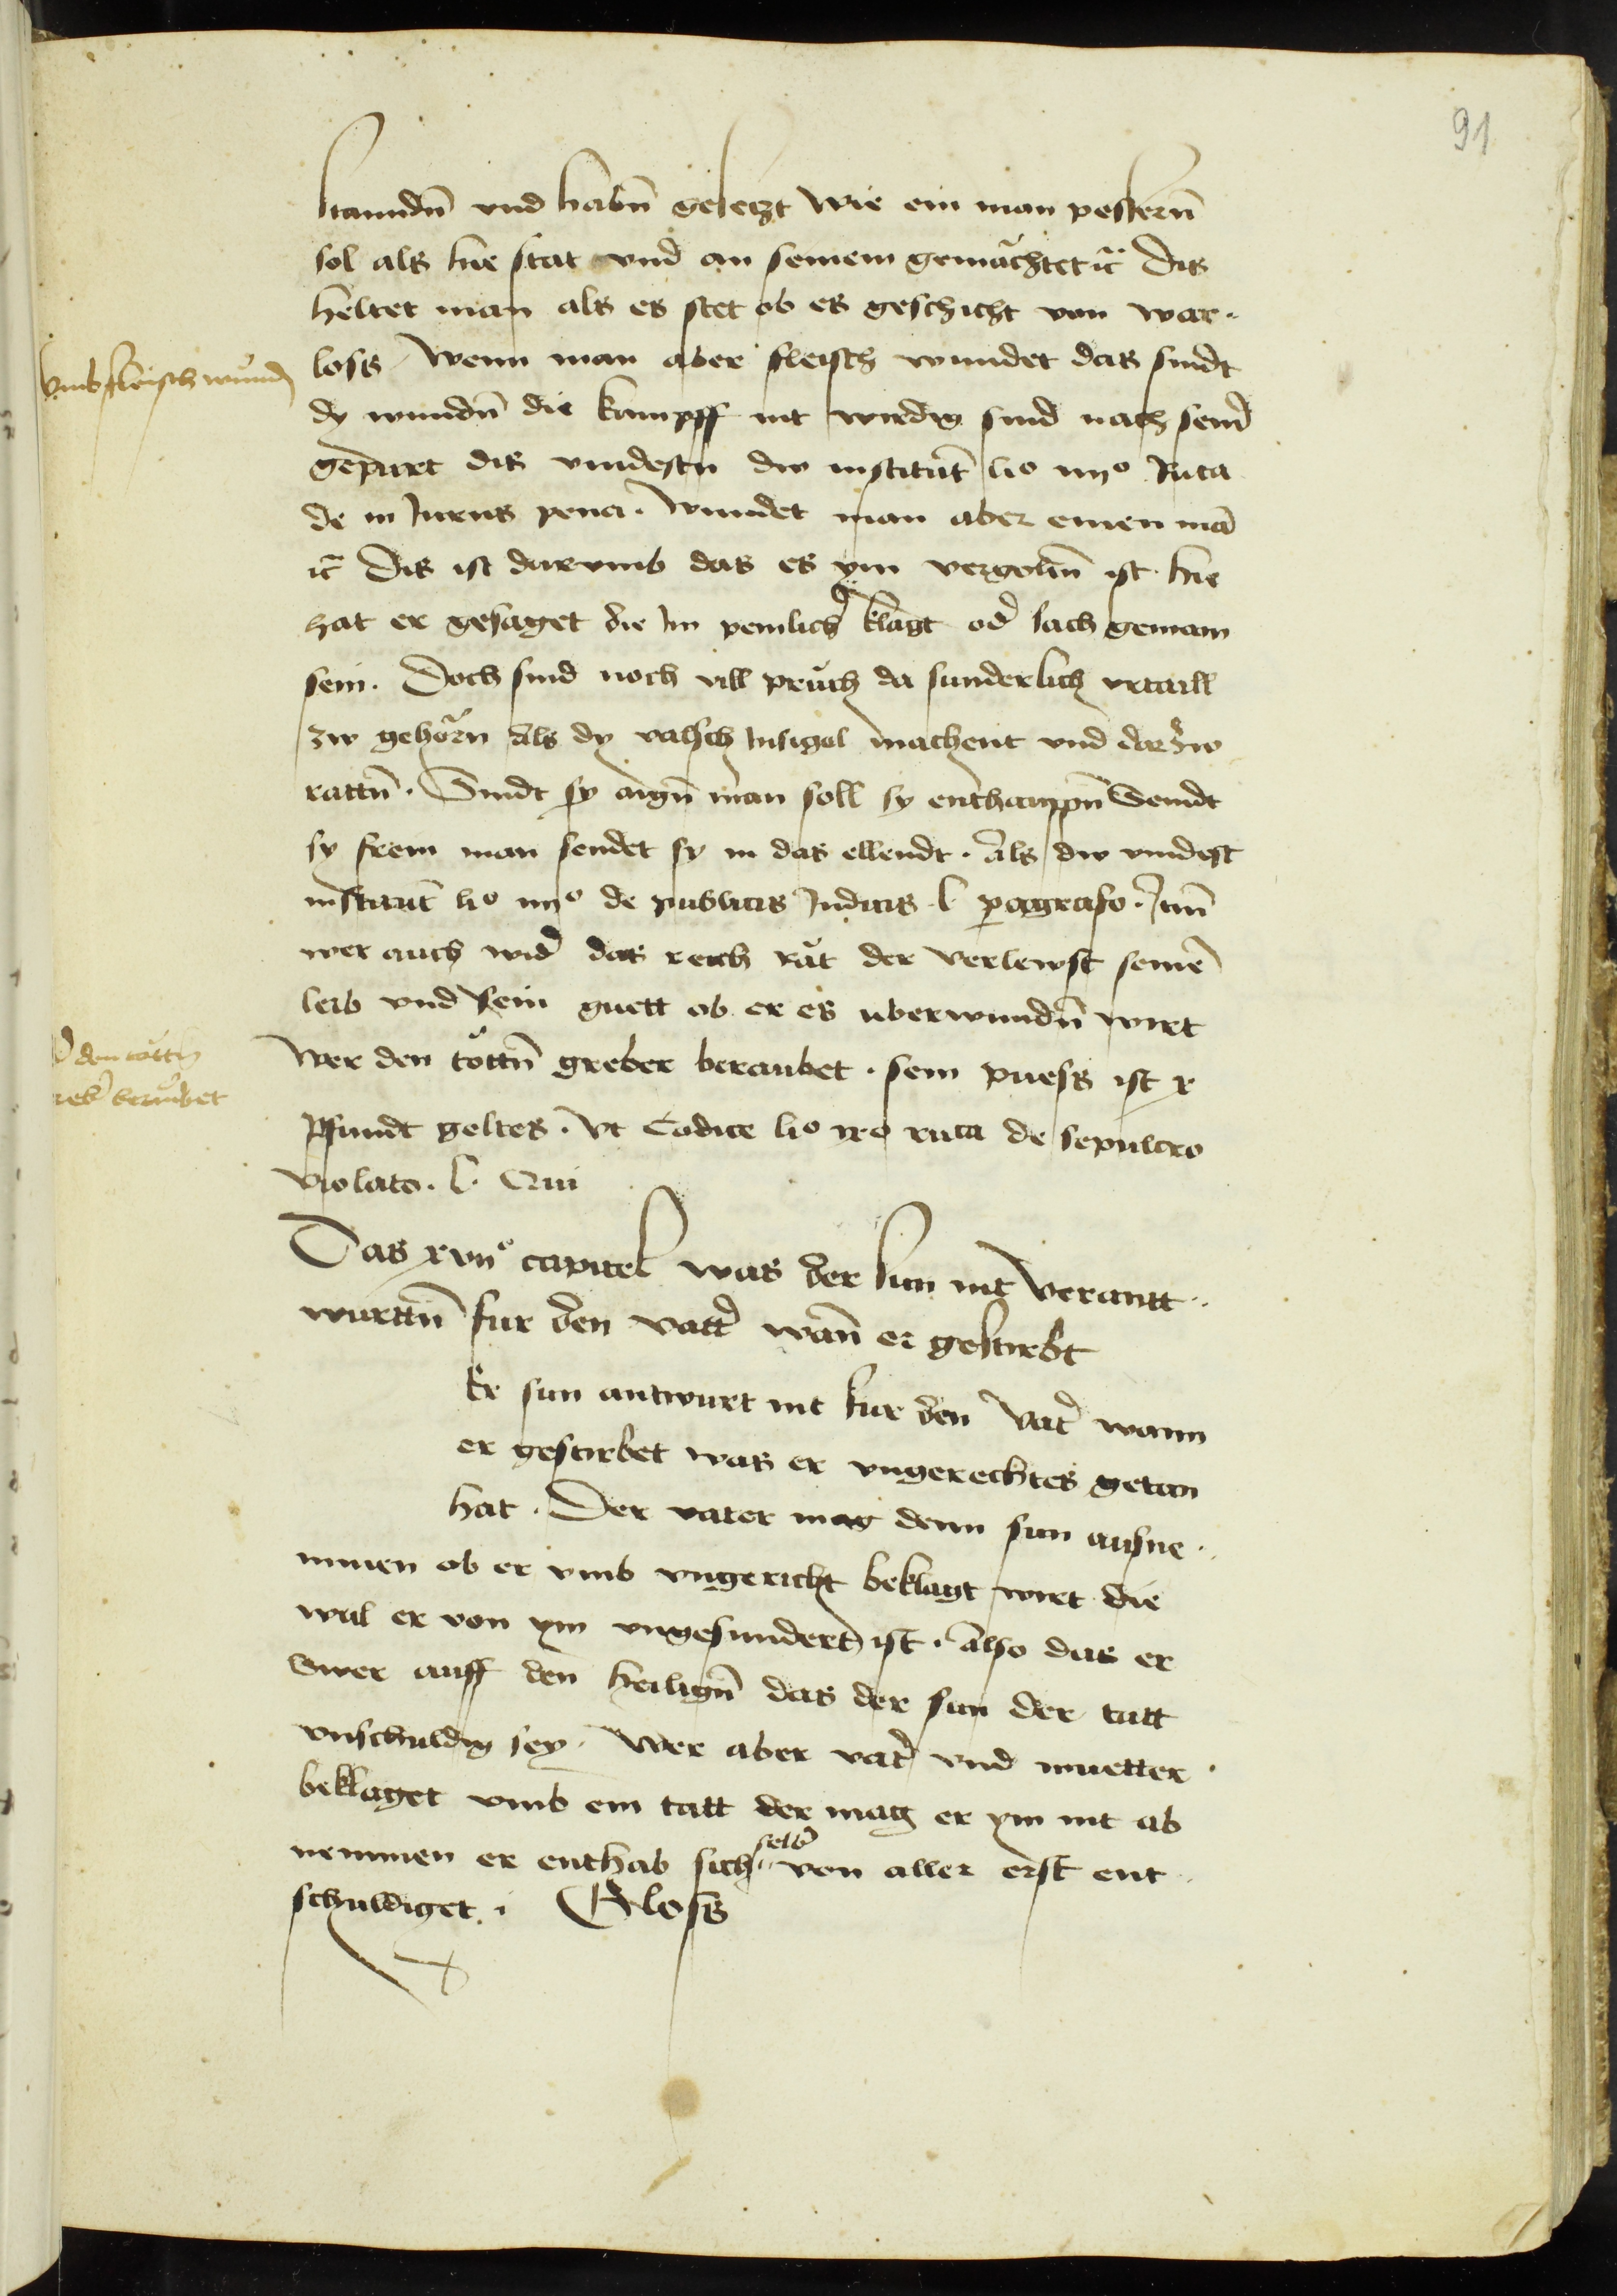 91
staundn̄ vnd habn̄ gesetzt wie ein man pessern̄
sol als hie stat vnd an seinem gemächtet ꝛc̄ Dis
heltet man als es stet ob es geschicht von war
loss Wenn man aber fleisch wundet das sindt
Vmb fleisch wund
dy wundn̄ die kampff nit wirdig sind nach seind
gepurt dis vindestu dw institut̄ lio iiijo Ruca
de in Iurus pena. Wundet man aber einen mā
ꝛc̄ Dis ist darvmb das es ym vergoltn̄ ist hie
hat er gesaget die Im peinlich klagt od̄ sach gemain
sein. Doch sind noch vill pruch da sunderlich vrtaill
zw gehörn Als dy valsch Insigel machent vnd darzw
rattn̄. Sindt sy aign̄ man soll sy enthawpn̄ Seindt
sy frein man sendet sy in das ellendt. Als dw vindest
institut̄ lio iiijo de publicis Iudicis l pagrafo. Itm̄
wer auch wid̄ das reich rat der verlewst seinē
leib vnd sein guett ob er es uberwundn̄ wirt
Wer den töttn̄ greber beraubet. sein puess ist x
den töttn
greb̄ beraubet
Pfundt geltes. Vt Codice lio ixo ruca de sepulcro
violato. l. Qui
Das xvijo capitel was der sun nit verantt
wurttn̄ fur den vatt̄ wan̄ er gestirbt
Er sun antwurt nit fur den vat̄ wann
er gestirbet was er vngerechtes getan
hat. Der vater mag denn sun ausne
mmen ob er vmb vngericht beklagt wirt die
wal er von ym vngesundert ist. Also das er
Swer auff den heilign̄ das der sun der tatt
vnschuldig sey. Wer aber vat̄ vnd muetter
beklaget vmb ein tatt der mag er ym nit ab
nemmen er enthab sich selb̄ von aller erst ent
schuldiget. Gloss